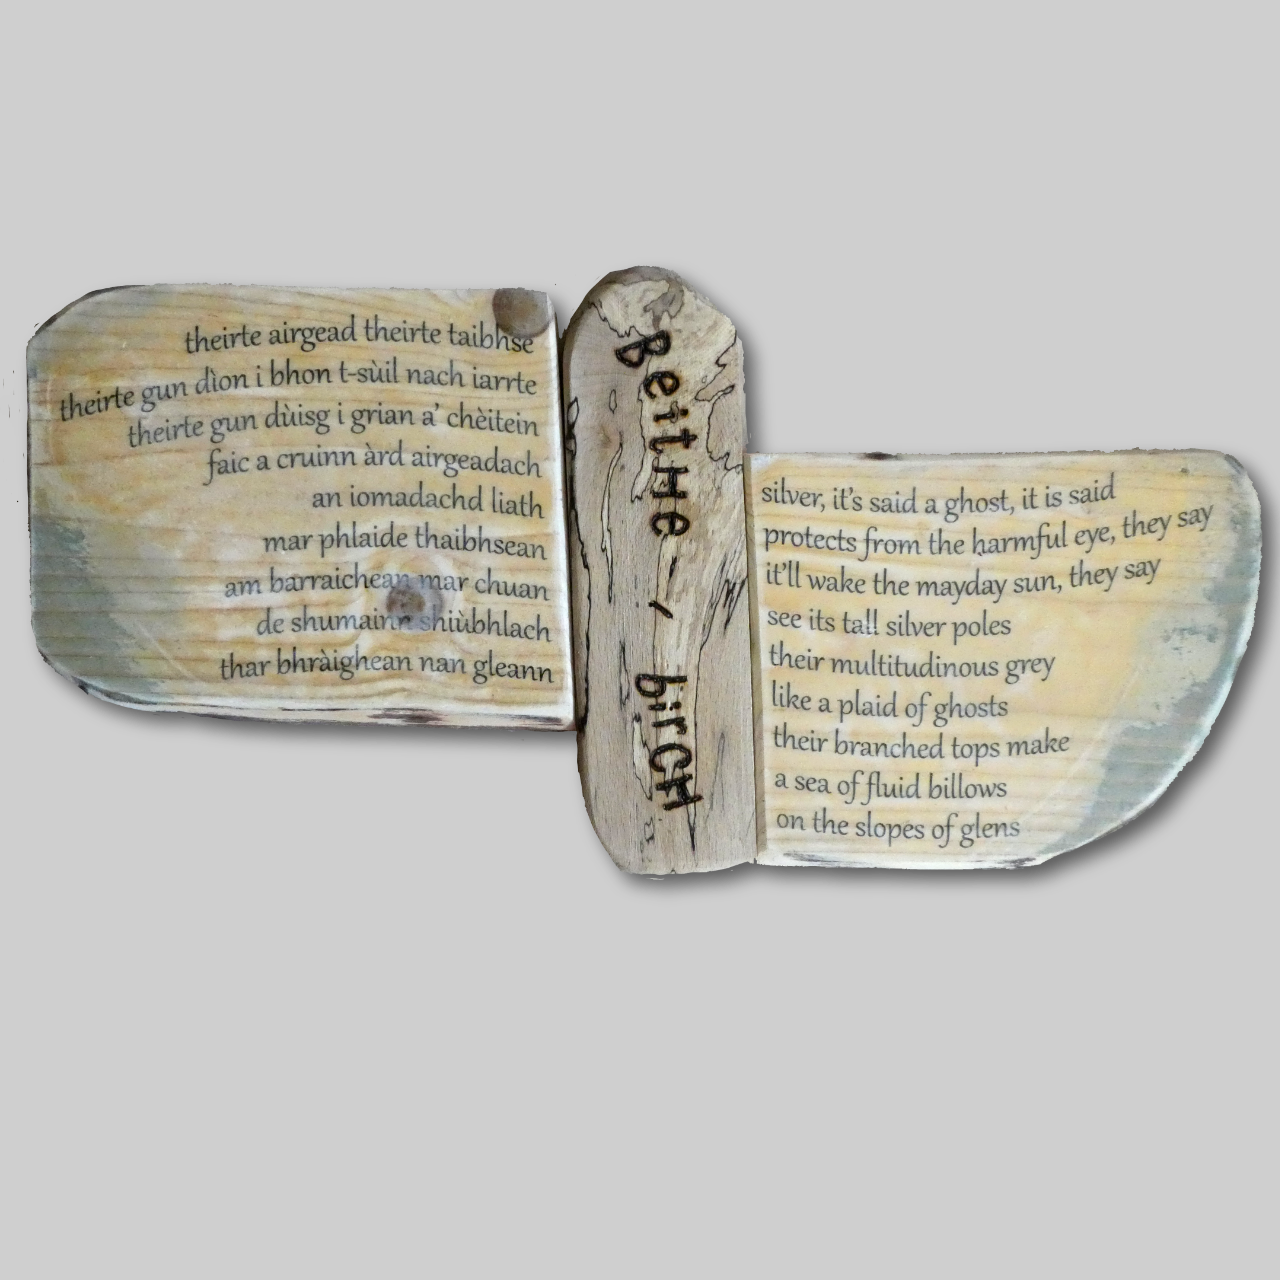 theirte airgead theirte taibhse
theirte gun dìon i bhon t-sùil nach iarrte
theirte gun dùisg i grian a' chèitein
faic a cruinn àrd airgeadach
an iomadachd liath
mar phlaide thaibhsean
am barraichean mar chuan
de shumainn shiùbhlach
thar bhràighean nan gleann
Beithe / birch
silver, it's said a ghost, it is said
protects from the harmful eye, they say
it'll wake the mayday sun, they say
see its tall silver poles
their multitudinous grey
like a plaid of ghosts
their branched tops make
a sea of fluid billows
on the slopes of glens